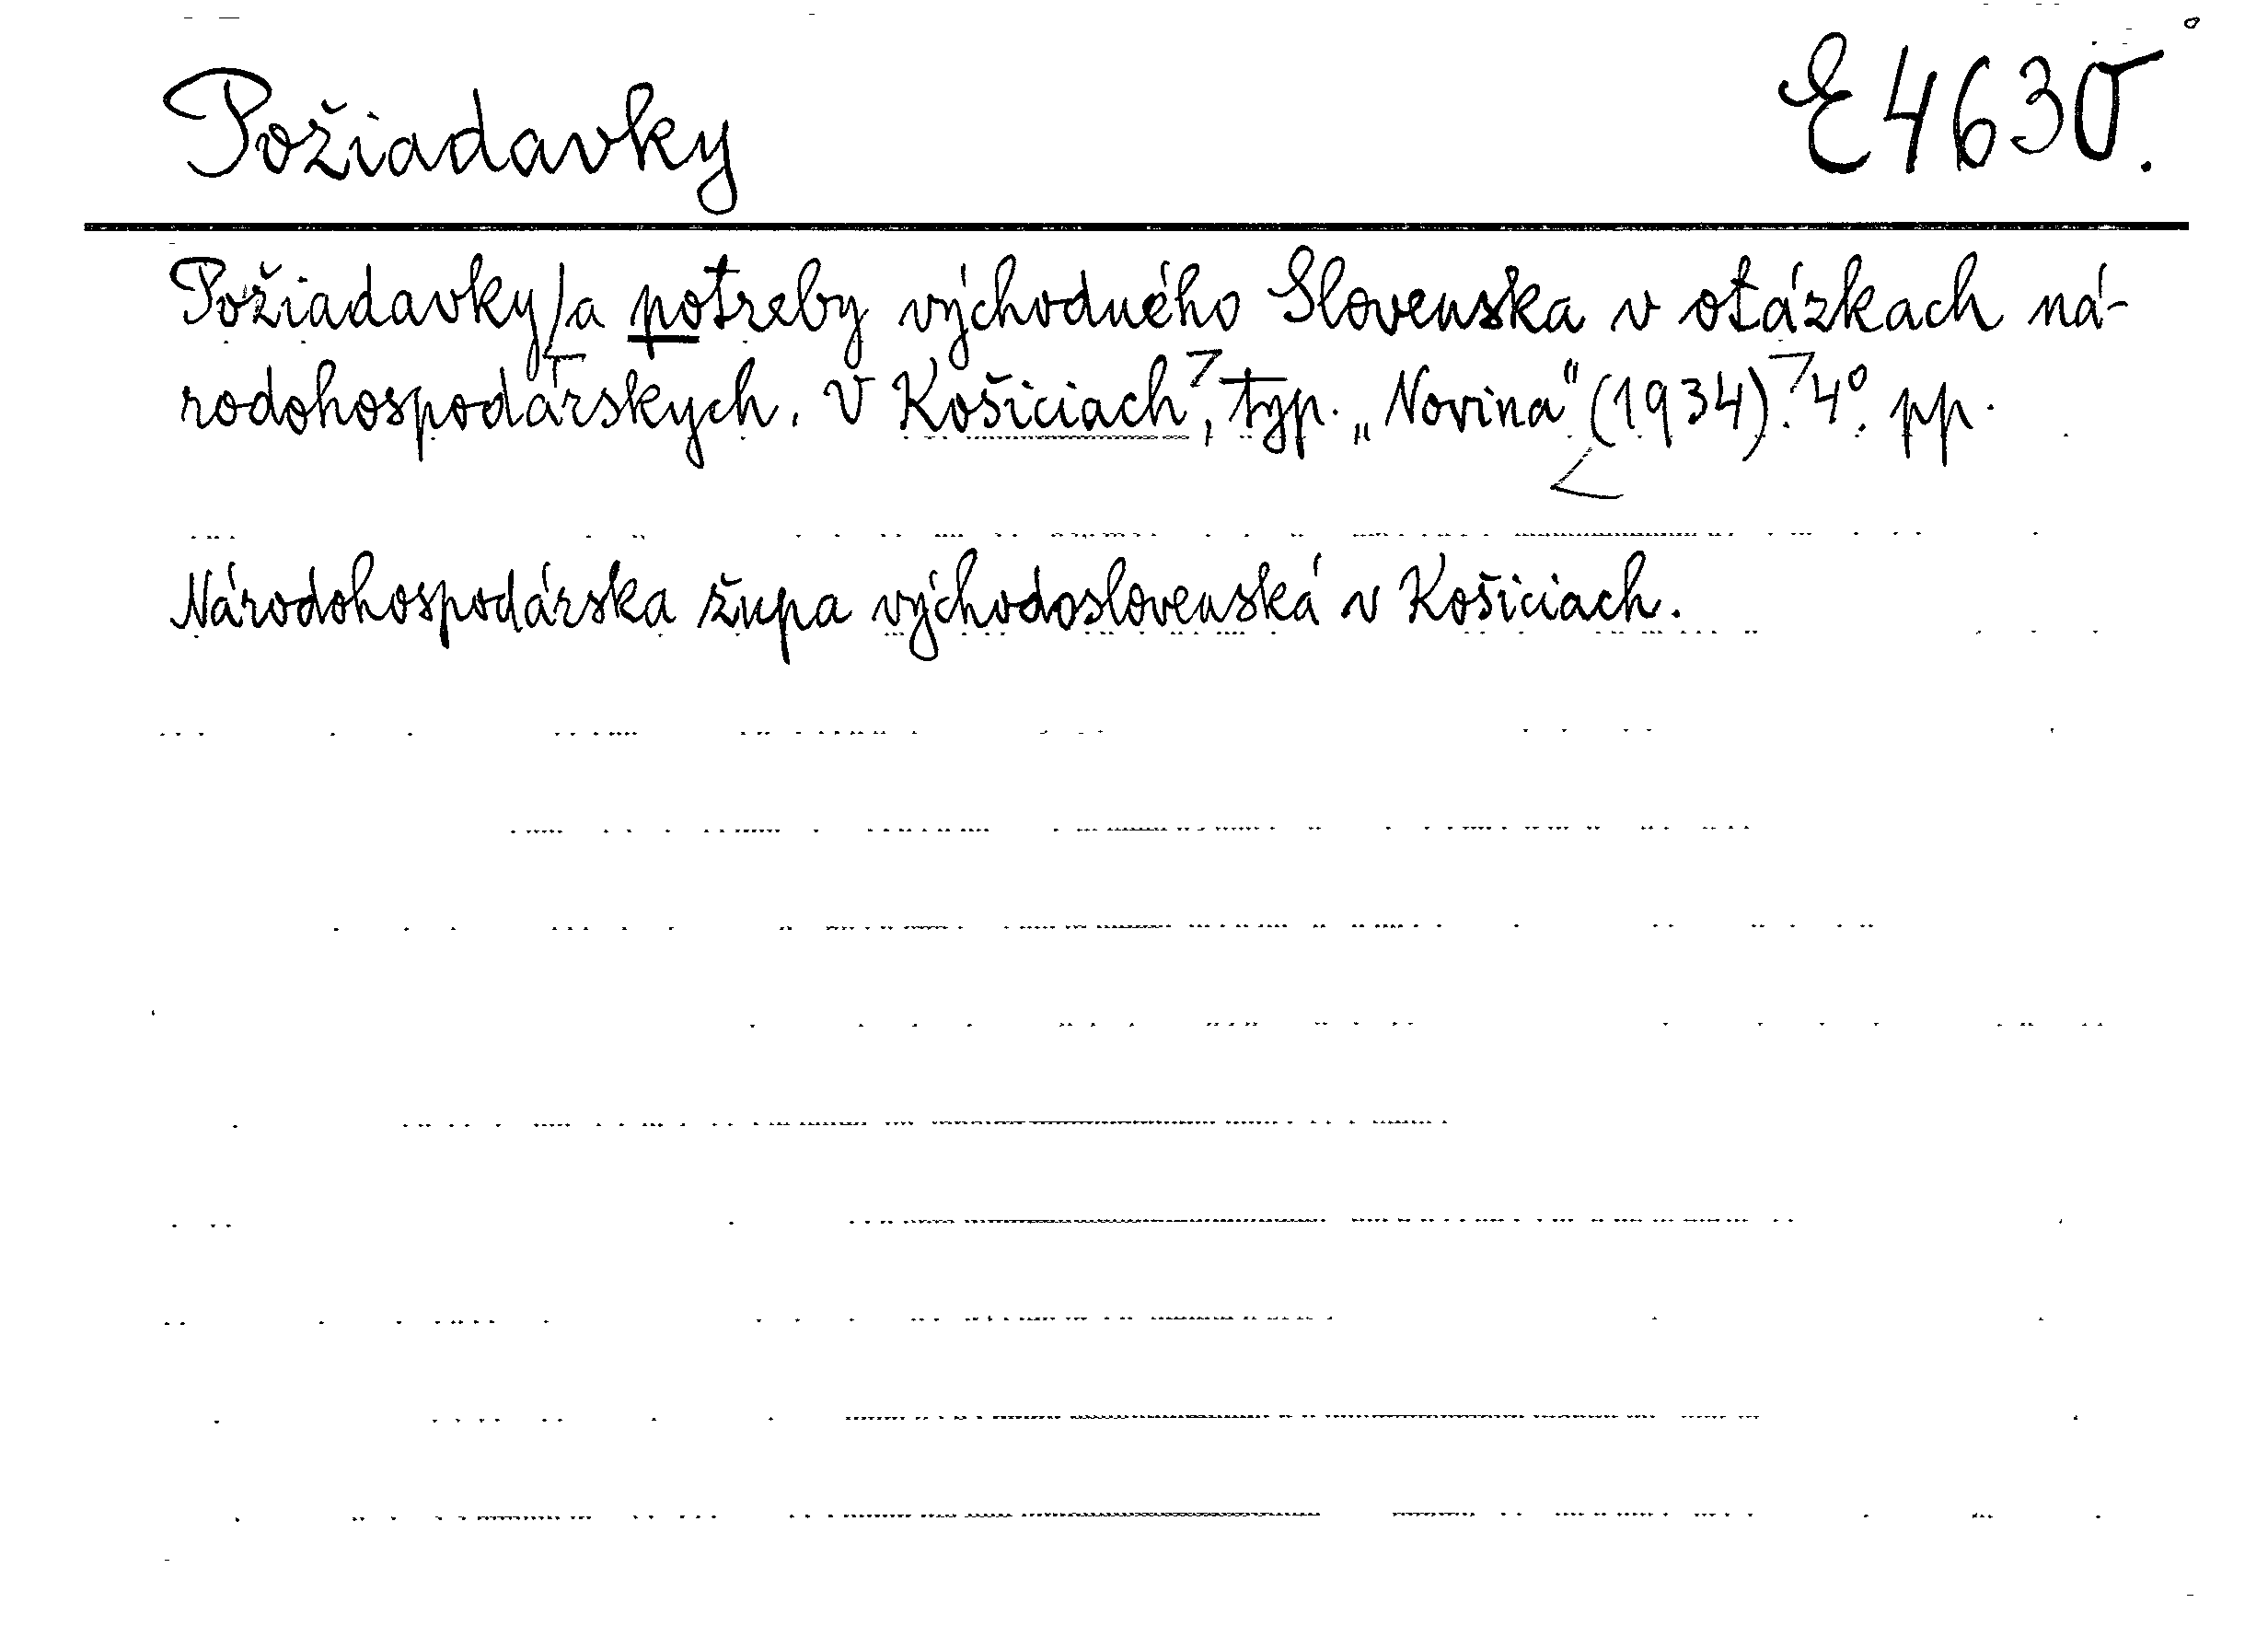 Požiadavky
E 4630.
Požiadavky a potreby východného Slovenska v otázkach ná-
rodohospodárskych. V Košiciach, typ. „Novina" (1934). 4°. pp.
Národohospodárska župa východoslovenská v Košiciach.